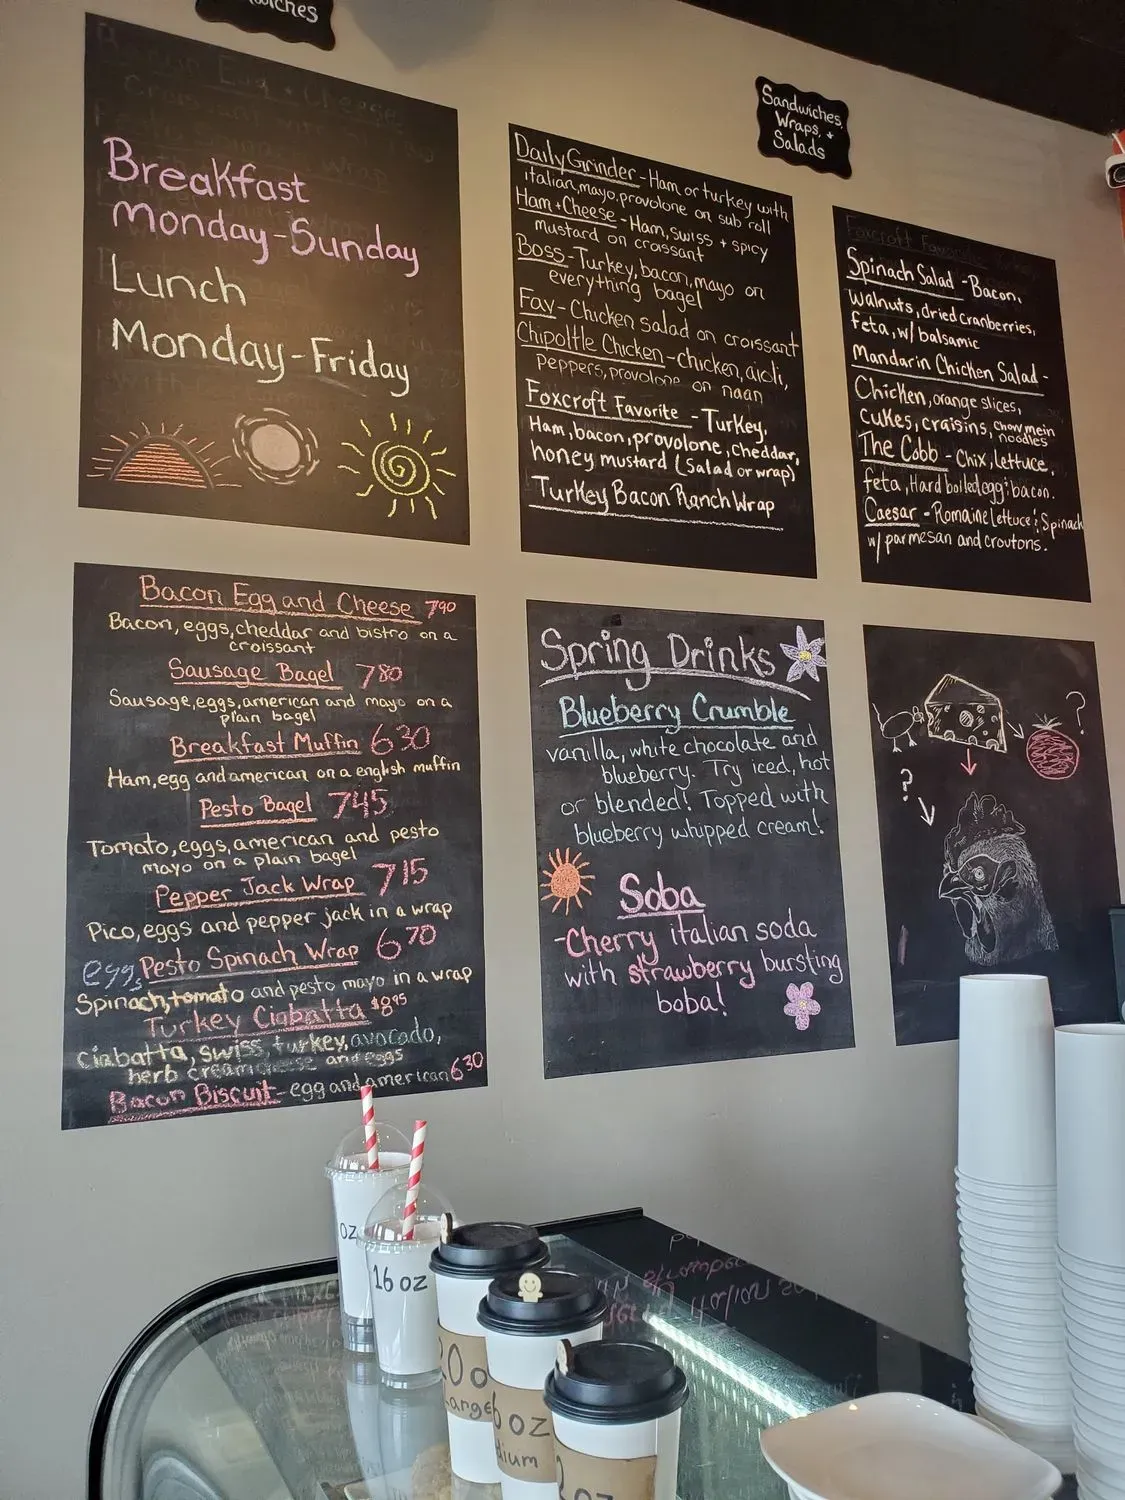 Breakfast
Monday-Sunday
Lunch
Monday-Friday
Sandwiches,
Wraps, +
Salads
Daily Grinder - Ham or turkey with
italian, mayo, provolone on sub roll
Ham + Cheese - Ham, swiss + spicy
mustard on croissant
Boss - Turkey, bacon, mayo on
everything bagel
Fav - Chicken salad on croissant
Chipoltle Chicken - chicken, aioli,
peppers, provolone on naan
Foxcroft Favorite - Turkey,
Ham, bacon, provolone, cheddar,
honey mustard (salad or wrap)
Turkey Bacon Ranch Wrap
Spinach Salad - Bacon,
walnuts, dried cranberries,
feta, w/ balsamic
Mandarin Chicken Salad -
Chicken, orange slices,
cukes, craisins, chow mein
noodles
The Cobb - Chix, lettuce,
feta, Hard boiled egg & bacon.
Caesar - Romaine lettuce & Spinach
w/ parmesan and croutons.
Bacon Egg and Cheese 7.90
Bacon, eggs, cheddar and bistro on a
croissant
Sausage Bagel 7.80
Sausage, eggs, american and mayo on a
plain bagel
Breakfast Muffin 6.30
Ham, egg and american on a english muffin
Pesto Bagel 7.45
Tomato, eggs, american and pesto
mayo on a plain bagel
Pepper Jack Wrap 7.15
Pico, eggs and pepper jack in a wrap
eggs, Pesto Spinach Wrap 6.70
Spinach, tomato and pesto mayo in a wrap
Turkey Ciabatta $8.95
Ciabatta, swiss, turkey, avocado,
herb cream cheese and eggs
Bacon Biscuit - egg and american 6.30
Spring Drinks
Blueberry Crumble
vanilla, white chocolate and
blueberry. Try iced, hot
or blended! Topped with
blueberry whipped cream!
Soba
-Cherry italian soda
with strawberry bursting
boba!
?
?
oz
16 oz
20 o
Large
oz
dium
oz